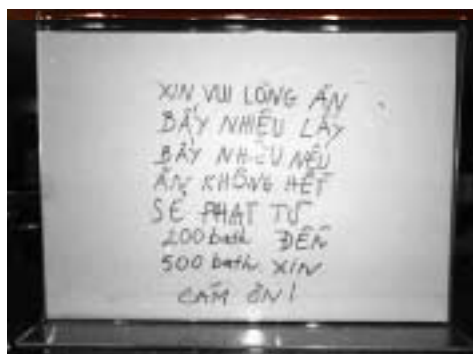 XIN VUI LÒNG ĂN
BẤY NHIÊU LẤY
BẤY NHIÊU NẾU
ĂN KHÔNG HẾT
SẼ PHẠT TỪ
200 bath ĐẾN
500 bath XIN
CẢM ƠN!